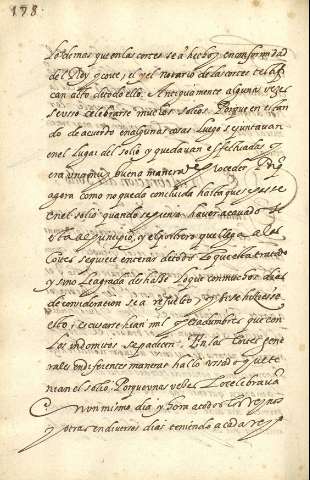 178.
Lo demas que en las cortes se a hecho, en conformidad
del Rey y corte, y el notario de las cortes
can alto de todo ello. Antiguamente algunas veçes
se usso celebrarse muchos solios. Porque en estan
do de acuerdo en algunas cosas luego se juntavan
en el lugar del solio y quedavan effectuadas y
era un gentil y buena manera de proceder. Porq
agora como no queda concluida hasta que
en el solio quando se piensa haver acavado se
esta al principio, y el postrero que llega a las
Cortes se quiere enterar de todo lo que esta tratado
y sino le agrada deshaze lo que con muchos dias
de consideracion se a resuelto y si se hiciesse
esto, escusarse hian mil pesadumbres que con
los indomitos se padecen. En las Cortes gene
rales en diferentes maneras hallo usado
nian el solio. Porque unas veçes lo celebravan
en un mismo dia y hora a todos los reynos
y otras en diversos dias teniendo a cada reyno